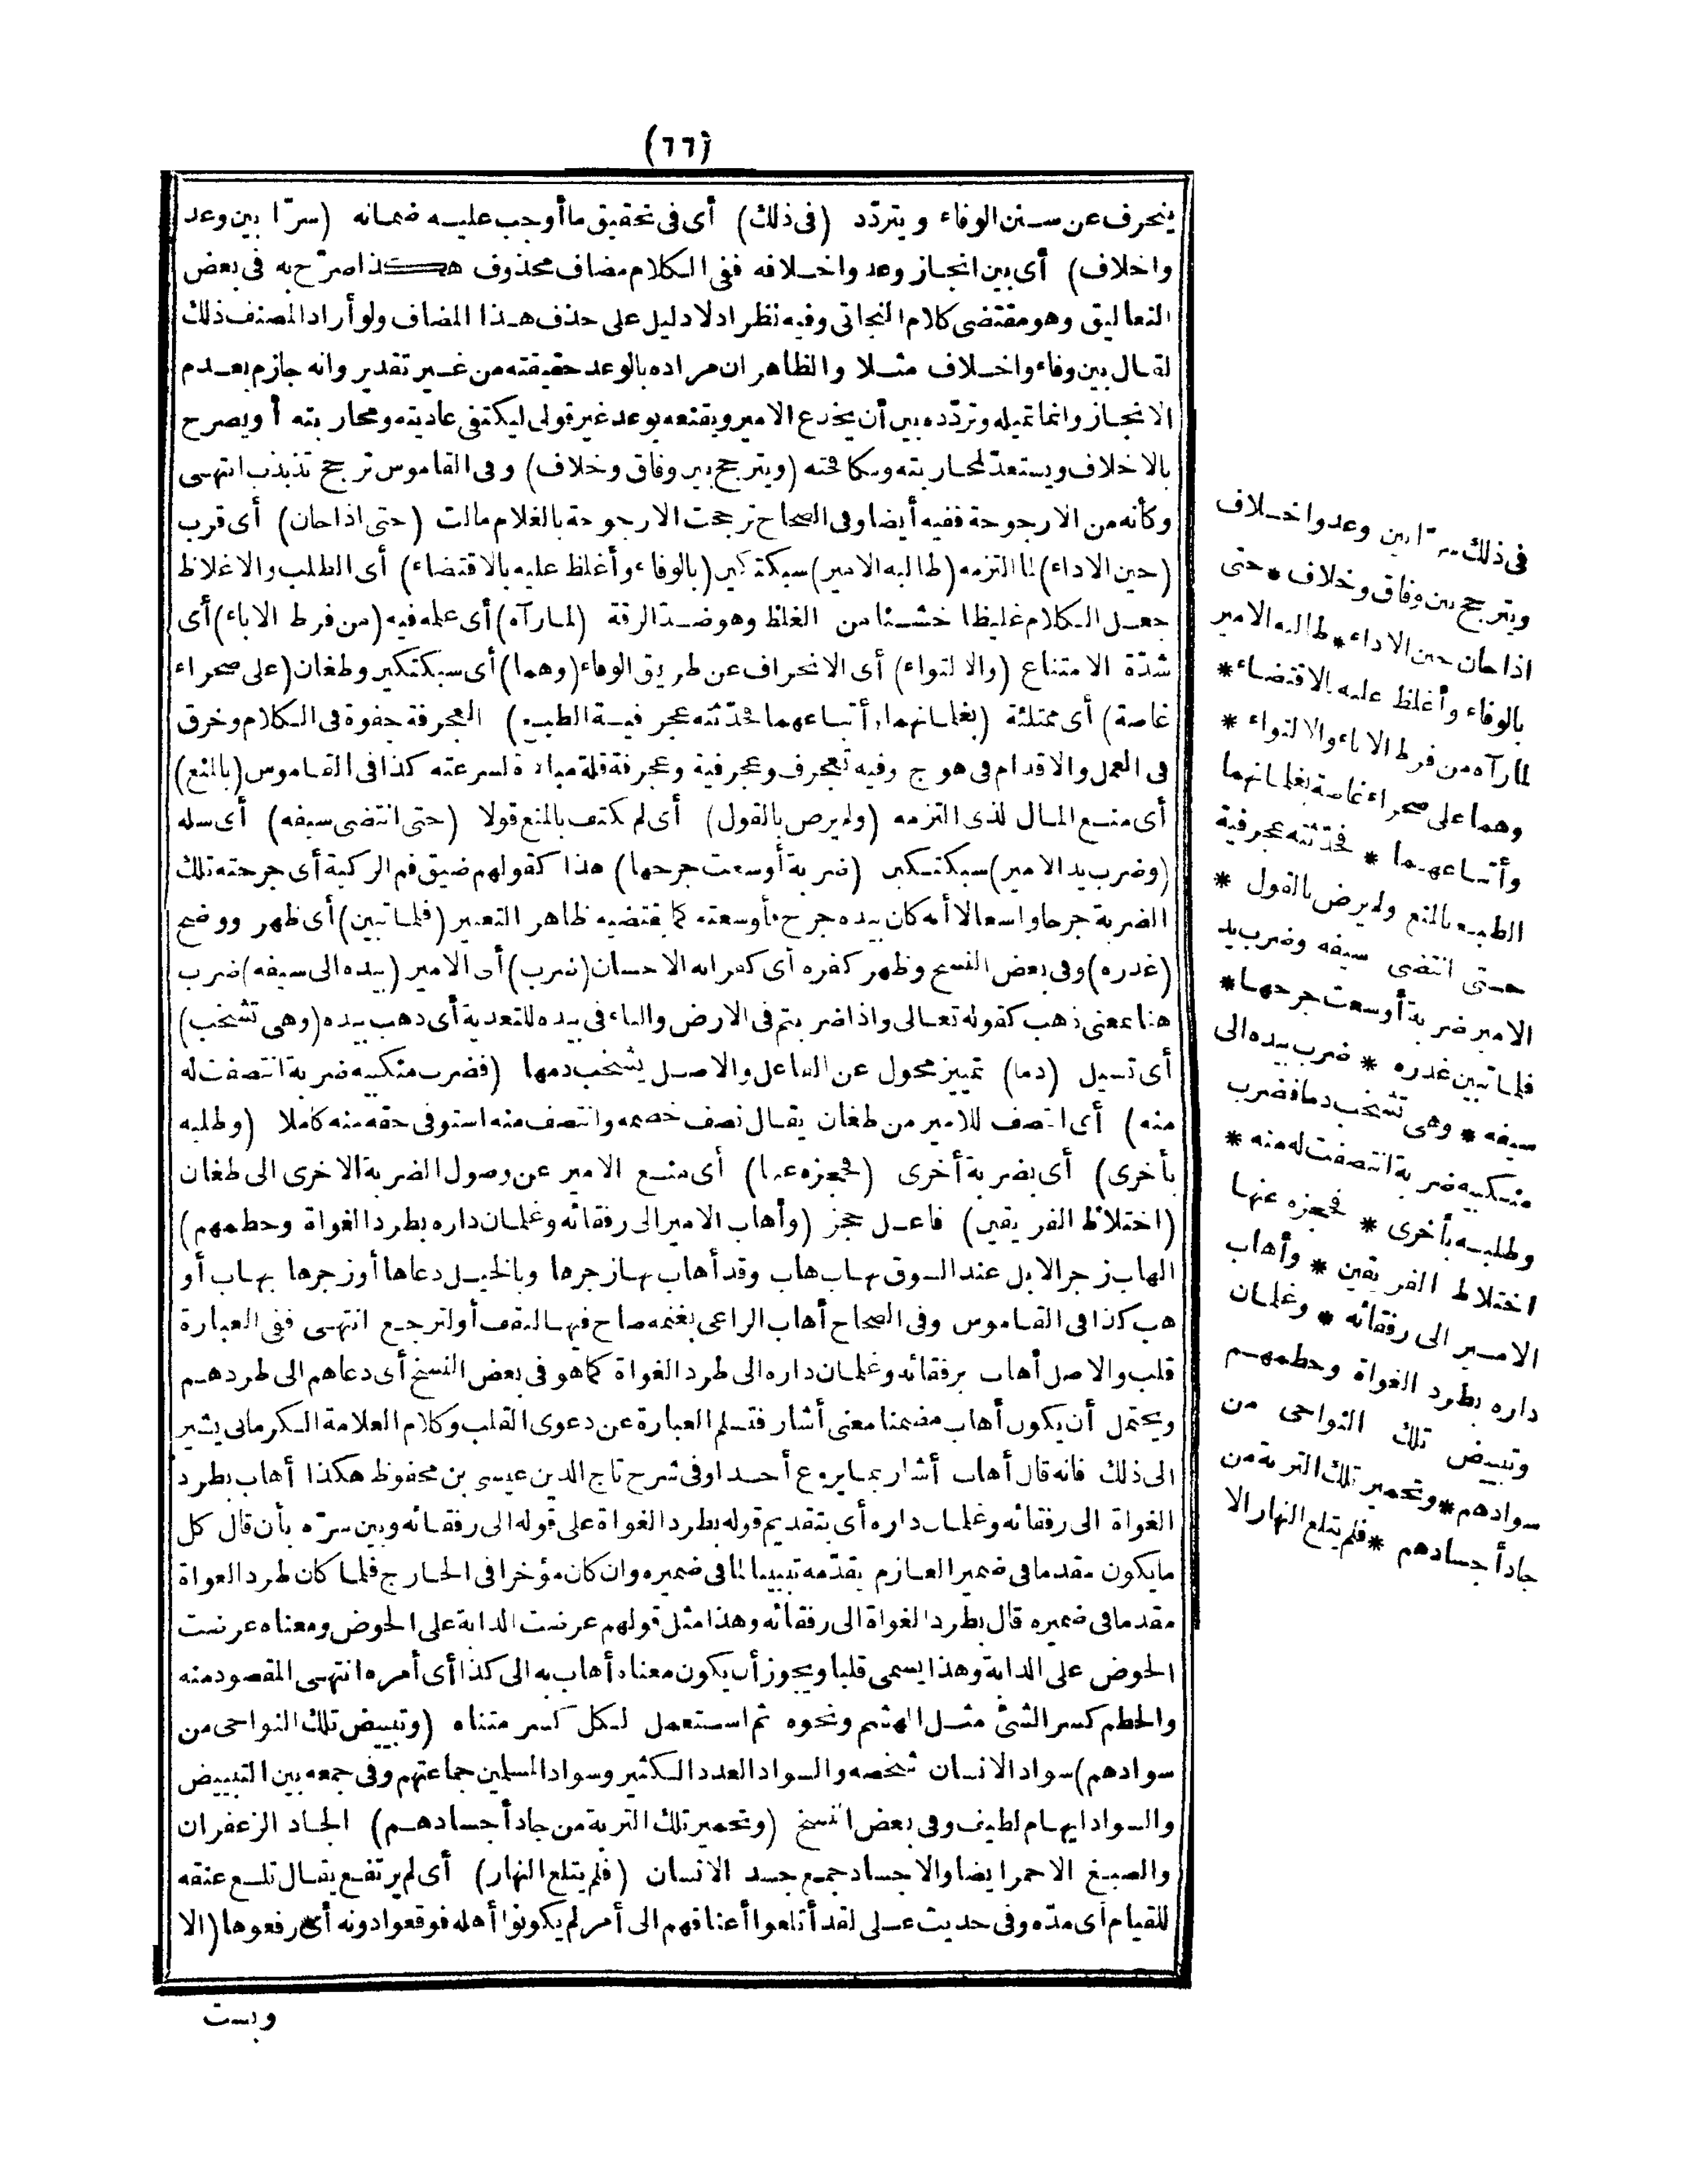 (٦٦)
ينحرف عن سنن الوفاء ويتردّد (فى ذلك) أى فى تحقيق ما أوجب عليه ضمانه (سرّا بين وعد
واخلاف) أى بين انجاز وعد واخلافه ففى الكلام مضاف محذوف هكذا صرّح به فى بعض
التعاليق وهو مقتضى كلام النجاتى وفيه نظر اذ لا دليل على حذف هذا المضاف ولو أراد المصنف ذلك
لقال بين وفاء واخلاف مثلا والظاهر ان مراده بالوعد حقيقته من غير تقدير وانه جازم بعدم
الانجاز وانما تميله وتردّده بين أن يخدع الامير ويقنعه بوعد غير قولى ليكتفى عاديته ومحاربته أو يصرح
بالاخلاف ويستعدّ لمحاربته ومكافحته (ويترجح بين وفاق وخلاف) وفى القاموس ترجح تذبذب انتهى
وكأنه من الارجوحة ففيه أيضا وفى الصحاح ترجحت الارجوحة بالغلام مالت (حتى اذا حان) أى قرب
(حين الاداء) لما التزمه (طالبه الامير) سبكتكين (بالوفاء وأغلظ عليه بالاقتضاء) أى الطلب والاغلاظ
جعل الكلام غليظا خشنا من الغلظ وهو ضدّ الرقة (لما رآه) أى علمه فيه (من فرط الاباء) أى
شدّة الامتناع (والالتواء) أى الانحراف عن طريق الوفاء (وهما) أى سبكتكين وطغان (على صحراء
غاصة) أى ممتلئة (بغلمانهما وأتباعهما فحدّثته عجرفية الطبع) العجرفة جفوة فى الكلام وخرق
فى العمل والاقدام فى هوج وفيه تعجرف وعجرفية وعجرفة قلة مبالاة لسرعته كذا فى القاموس (بالمنع)
أى منع المال الذى التزمه (ولم يرض بالقول) أى لم يكتف بالمنع قولا (حتى انتضى سيفه) أى سله
(وضرب يد الامير) سبكتكين (ضربة أوسعت جرحها) هذا كقولهم ضيق فم الركية أى جرحته تلك
الضربة جرحا واسعا لا أنه كان بيده جرح فأوسعته كما يقتضيه ظاهر التعبير (فلما تبين) أى ظهر ووضح
(غدره) وفى بعض النسخ وظهر كفره أى كفرانه الاحسان (ضرب) أى الامير (بيده الى سيفه) ضرب
هنا بمعنى ذهب كقوله تعالى واذا ضربتم فى الارض والباء فى بيده للتعدية أى ذهب بيده (وهى تشخب)
أى تسيل (دما) تمييز محول عن الفاعل والاصل يشخب دمها (فضرب منكبيه ضربة انتصفت له
منه) أى انتصف للامير من طغان يقال نصف خصمه وانتصف منه استوفى حقه منه كاملا (وطلبه
بأخرى) أى بضربة أخرى (فحجزه عنها) أى منع الامير عن وصول الضربة الاخرى الى طغان
(اختلاط الفريقين) فاعل حجز (وأهاب الامير الى رفقائه وغلمان داره بطرد الغواة وحطمهم)
الهاب زجر الابل عند السوق بهاب هاب وقد أهاب بها زجرها وبالخيل دعاها أو زجرها بهاب أو
هب كذا فى القاموس وفى الصحاح أهاب الراعى بغنمه صاح فيها لتقف أو لترجع انتهى ففى العبارة
قلب والاصل أهاب برفقائه وغلمان داره الى طرد الغواة كما هو فى بعض النسخ أى دعاهم الى طردهم
ويحتمل أن يكون أهاب مضمنا معنى أشار فتسلم العبارة عن دعوى القلب وكلام العلامة الكرمانى يشير
الى ذلك فانه قال أهاب أشار بما يروع أحدا وفى شرح تاج الدين عيسى بن محفوظ هكذا أهاب بطرد
الغواة الى رفقائه وغلمان داره أى بتقديم قوله بطرد الغواة على قوله الى رفقائه وبين سرّه بأن قال كل
ما يكون مقدما فى ضمير العازم يقدّمه تبيينا لما فى ضميره وان كان مؤخرا فى الخارج فلما كان طرد الغواة
مقدما فى ضميره قال بطرد الغواة الى رفقائه وهذا مثل قولهم عرضت الدابة على الحوض ومعناه عرضت
الحوض على الدابة وهذا يسمى قلبا ويجوز أن يكون معناه أهاب به الى كذا أى أمره انتهى المقصود منه
والحطم كسر الشئ مثل الهشم ونحوه ثم استعمل لكل كسر متناه (وتبييض تلك النواحى من
سوادهم) سواد الانسان شخصه والسواد العدد الكثير وسواد المسلمين جماعتهم وفى جمعه بين التبييض
والسواد ايهام لطيف وفى بعض النسخ (وتحمير تلك التربة من جاد أجسادهم) الجاد الزعفران
والصبغ الاحمر ايضا والاجساد جمع جسد الانسان (فلم يتلع النهار) أى لم يرتفع يقال تلع عنقه
للقيام أى مدّه وفى حديث على لقد أتلعوا أعناقهم الى أمر لم يكونوا أهله فوقعوا دونه أى رفعوها (الا
وبست
فى ذلك سرّا بين وعد واخلاف
ويترجح بين وفاق وخلاف * حتى
اذا حان حين الاداء * طالبه الامير
بالوفاء وأغلظ عليه بالاقتضاء *
لما رآه من فرط الاباء والالتواء *
وهما على صحراء غاصة بغلمانهما
وأتباعهما * فحدّثته عجرفية
الطبع بالمنع ولم يرض بالقول *
حتى انتضى سيفه وضرب يد
الامير ضربة أوسعت جرحها *
فلما تبين غدره * ضرب بيده الى
سيفه * وهى تشخب دما فضرب
منكبيه ضربة انتصفت له منه *
وطلبه بأخرى * فحجزه عنها
اختلاط الفريقين * وأهاب
الامير الى رفقائه * وغلمان
داره بطرد الغواة وحطمهم
وتبييض تلك النواحى من
سوادهم * وتحمير تلك التربة من
جاد أجسادهم * فلم يتلع النهار الا